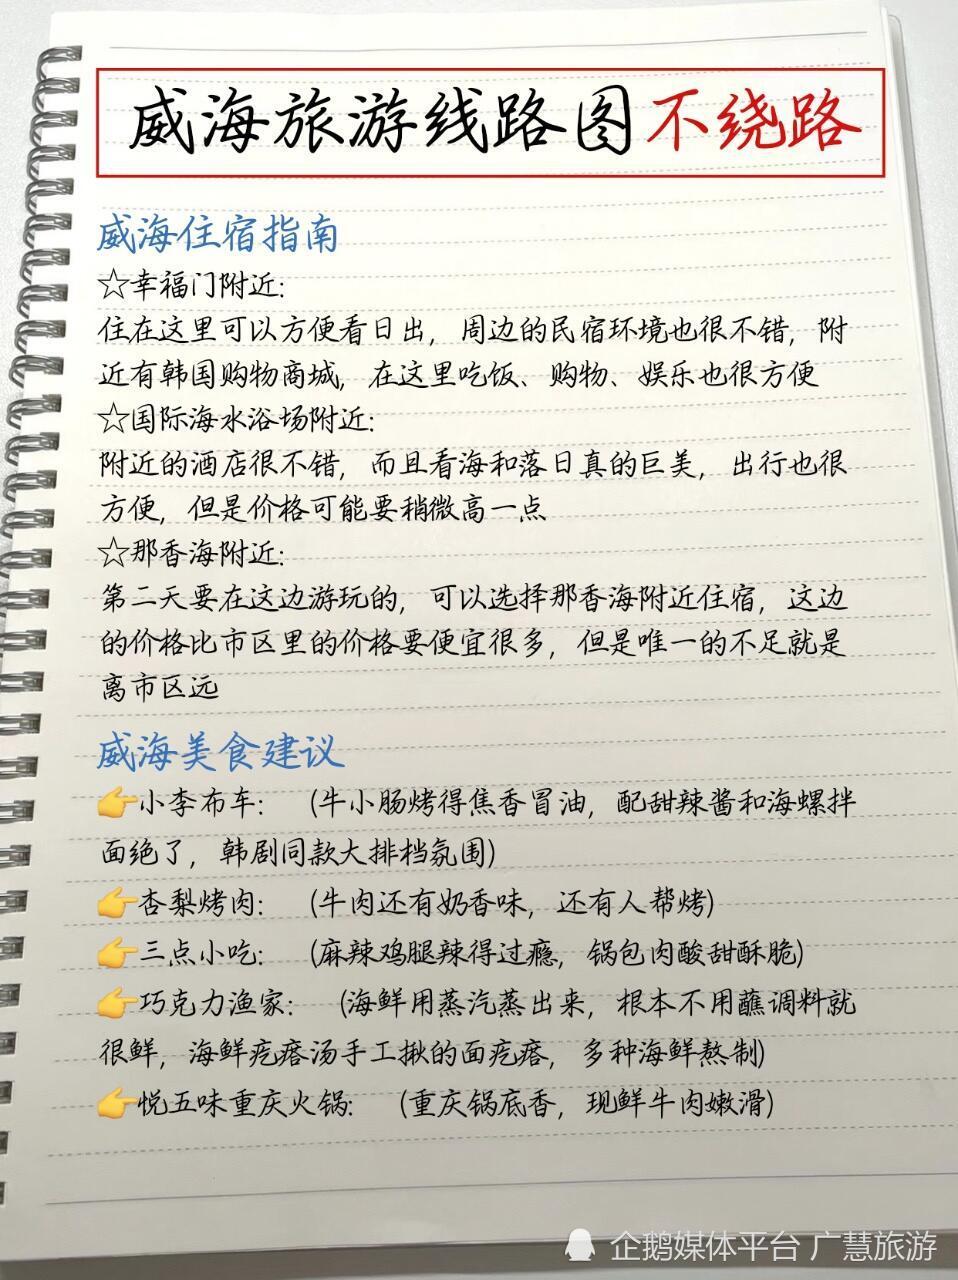 威海旅游线路图不绕路
威海住宿指南
☆幸福门附近:
住在这里可以方便看日出，周边的民宿环境也很不错，附
近有韩国购物商城，在这里吃饭、购物、娱乐也很方便
☆国际海水浴场附近:
附近的酒店很不错，而且看海和落日真的巨美，出行也很
方便，但是价格可能要稍微高一点
☆那香海附近:
第二天要在这边游玩的，可以选择那香海附近住宿，这边
的价格比市区里的价格要便宜很多，但是唯一的不足就是
离市区远
威海美食建议
👉小李布车: (牛小肠烤得焦香冒油，配甜辣酱和海螺拌
面绝了，韩剧同款大排档氛围)
👉杏梨烤肉: (牛肉还有奶香味，还有人帮烤)
👉三点小吃: (麻辣鸡腿辣得过瘾，锅包肉酸甜酥脆)
👉巧克力渔家: (海鲜用蒸汽蒸出来，根本不用蘸调料就
很鲜，海鲜疙瘩汤手工揪的面疙瘩，多种海鲜熬制)
👉悦五味重庆火锅: (重庆锅底香，现鲜牛肉嫩滑)
企鹅媒体平台 广慧旅游